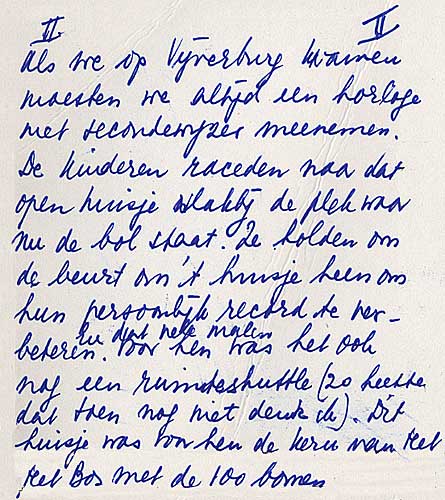 II II
Als we op Vijverburg kwamen
moesten we altijd een horloge
met secondewijzer meenemen.
De kinderen raceden naar dat
open huisje vlakbij de plek waar
nu de bol staat. Ze holden om
de beurt om 't huisje heen om
hun persoonlijk record te ver-
En dat vele malen
beteren. Voor hen was het ook
nog een ruimteshuttle (zo heette
dat toen nog niet denk ik). Dit
huisje was voor hen de kern van Het
Het Bos met de 100 bomen